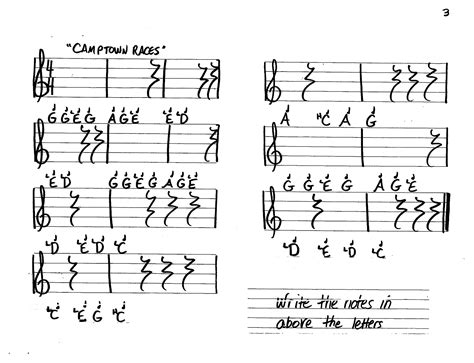 3
"CAMPTOWN RACES"
4
4
G G E G A G E E D
E D G G E G A G E
D E D C
C E G HC
A HC A G
G G E G A G E
D E D C
Write the notes in
above the letters